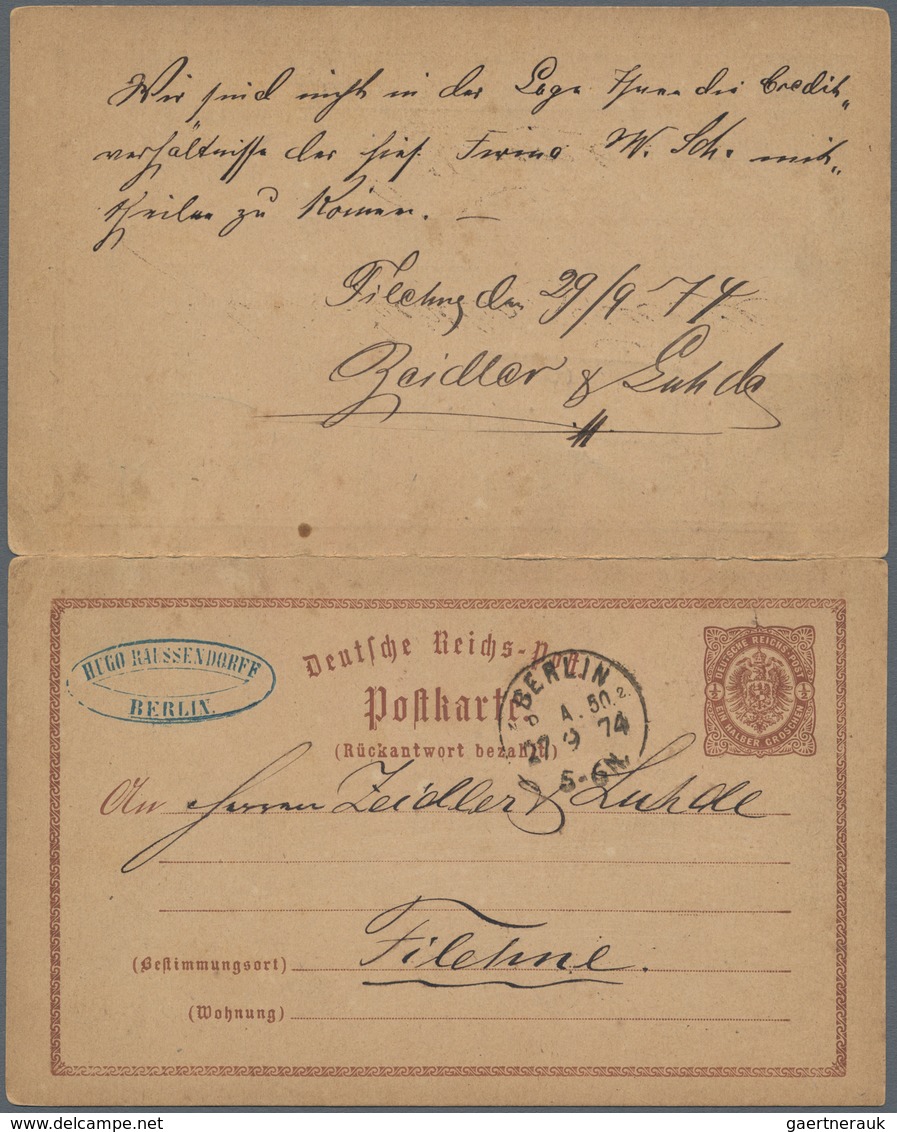 Wir sind nicht in der Lage Ihnen die Credit„
verhältnisse der hies. Firma W. Sch. mit„
theilen zu können. —
Filehne den 29/9 - 74
Zeidler & Luhde
HUGO RAUSSENDORFF
BERLIN.
Deutsche Reichs-Post
Postkarte
(Rückantwort bezahlt)
BERLIN
P. A. 50.2.
27 9 74
5-6N.
DEUTSCHE REICHS-POST
½ ½
EIN HALBER GROSCHEN
An Herren Zeidler & Luhde
(Bestimmungsort) Filehne.
(Wohnung)
delcampe.net
gaertnerauk